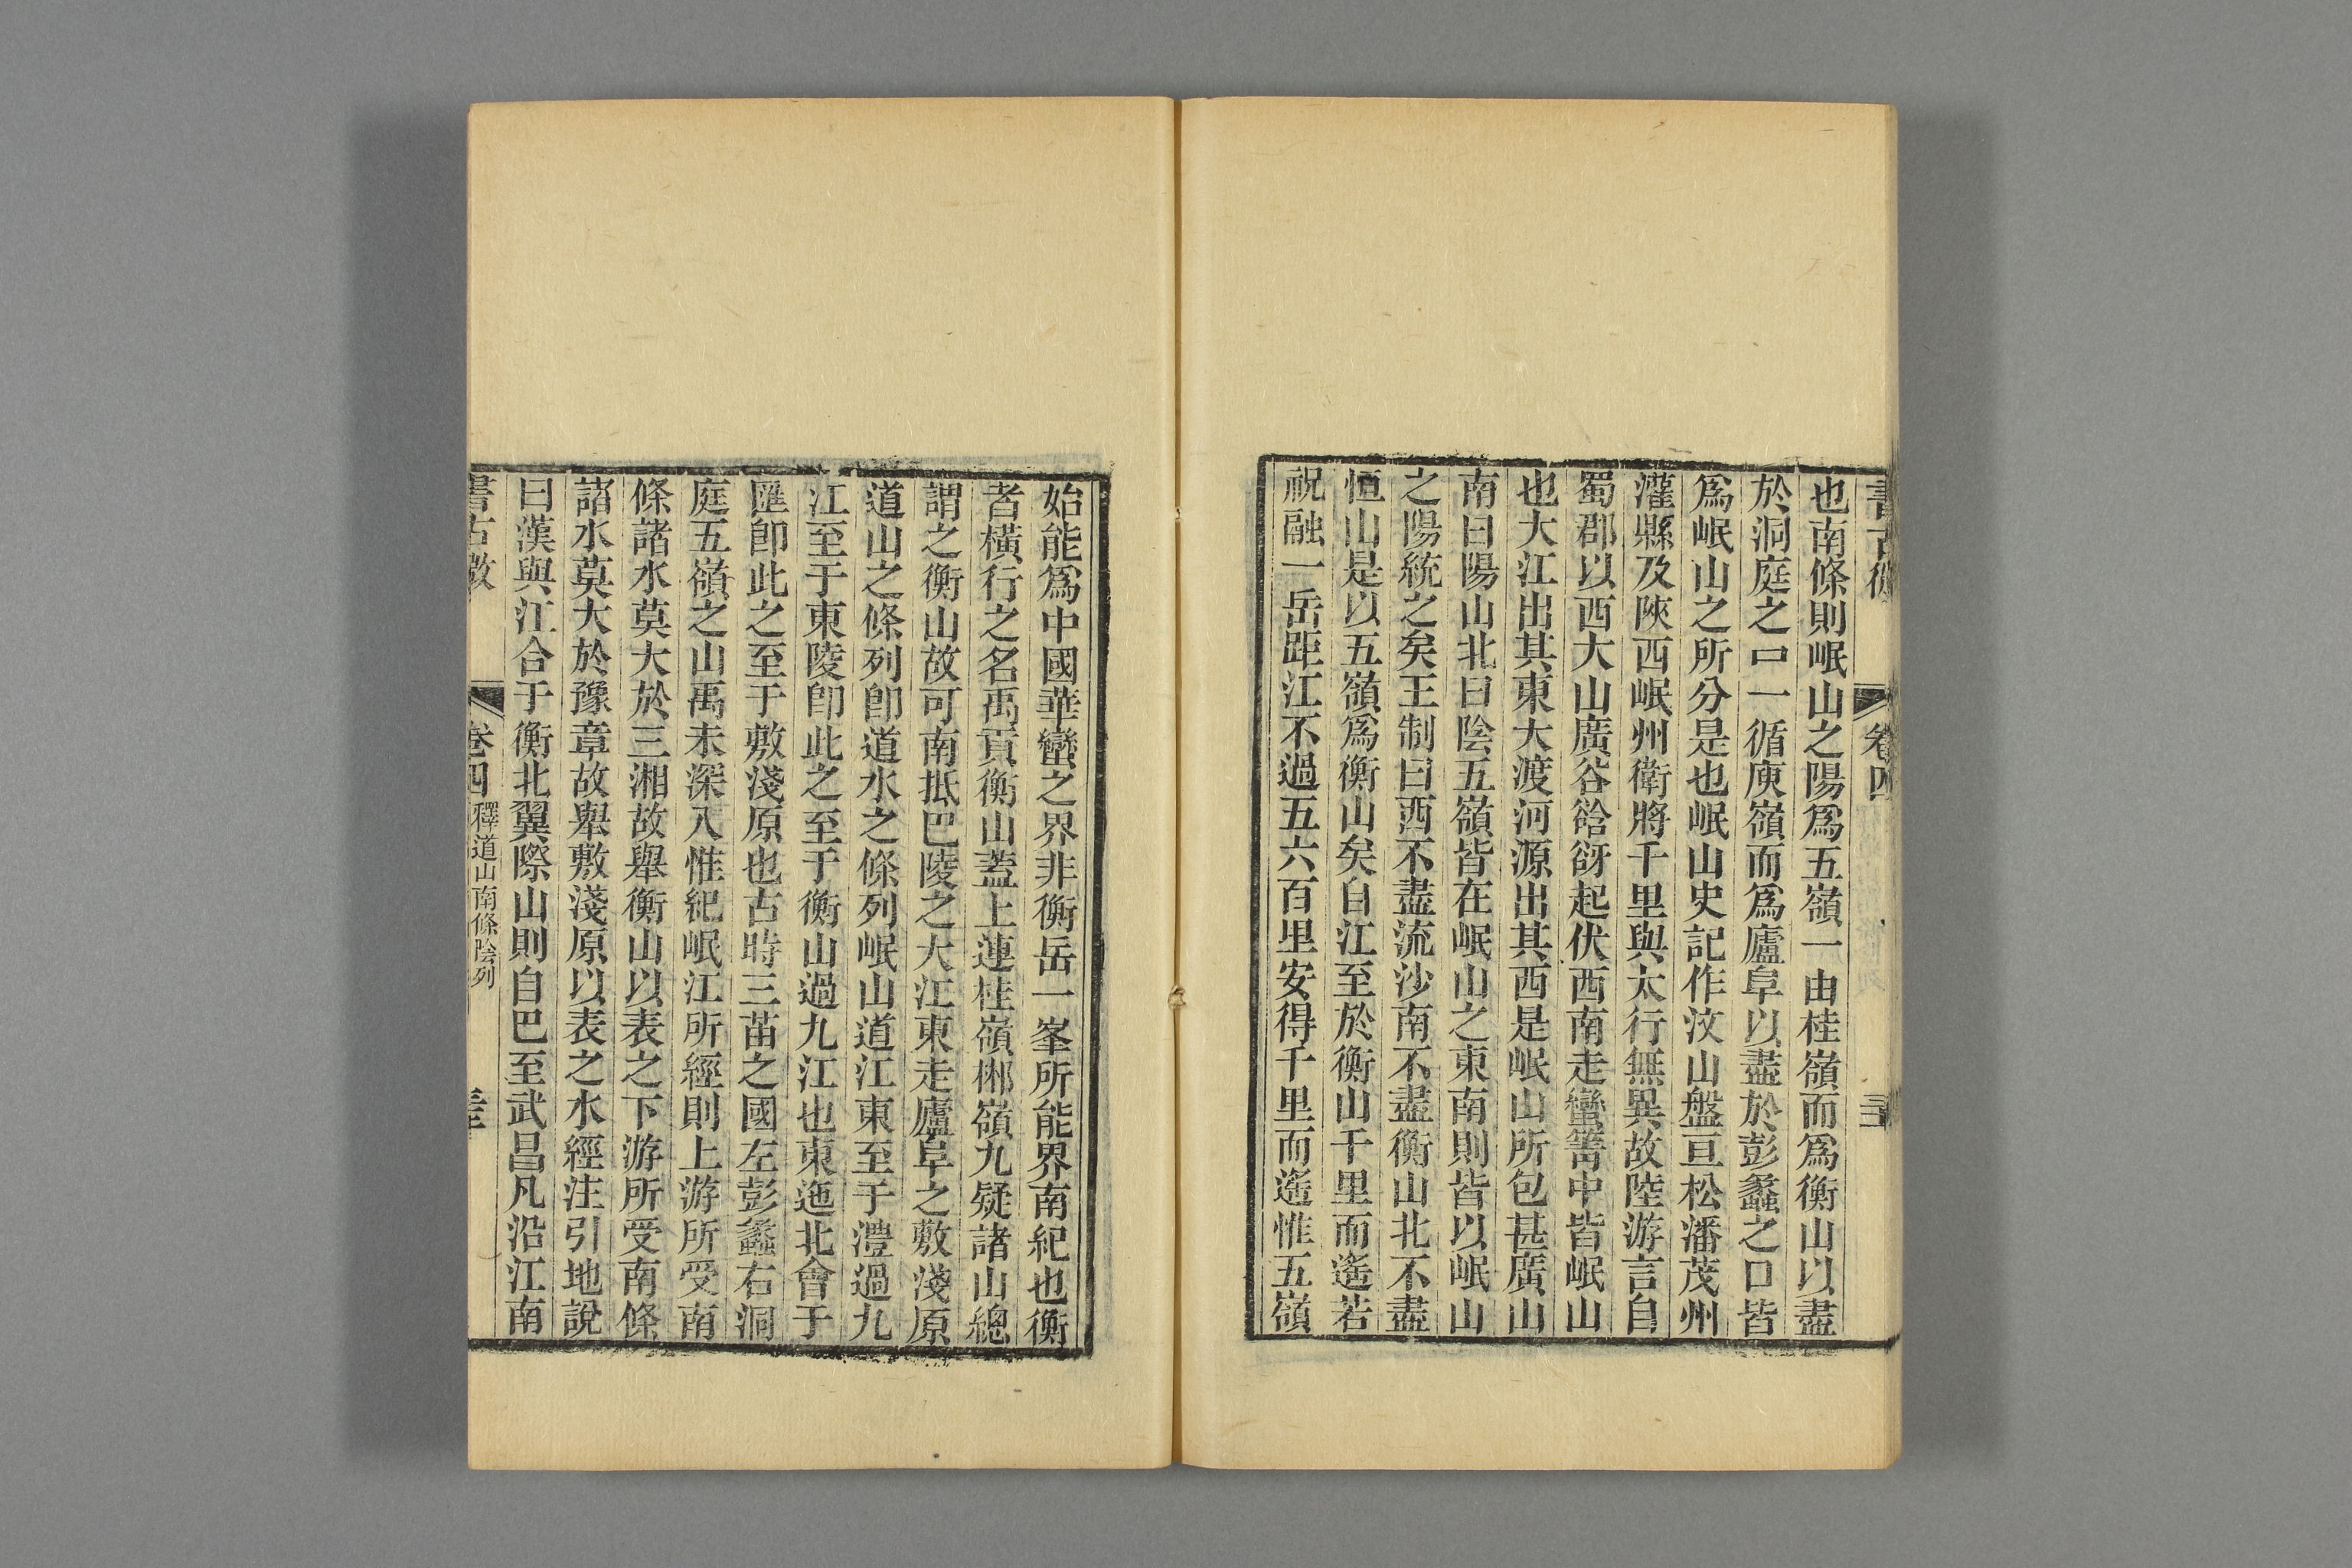 書古微
卷四
也南條則岷山之陽爲五嶺一由桂嶺而爲衡山以盡
於洞庭之口一循庾嶺而爲廬阜以盡於彭蠡之口皆
爲岷山之所分是也岷山史記作汶山盤亘松潘茂州
灌縣及陝西岷州衛將千里與太行無異故陸游言自
蜀郡以西大山廣谷谽谺起伏西南走蠻箐中皆岷山
也大江出其東大渡河源出其西是岷山所包甚廣山
南曰陽山北曰陰五嶺皆在岷山之東南則皆以岷山
之陽統之矣王制曰西不盡流沙南不盡衡山北不盡
恒山是以五嶺爲衡山矣自江至於衡山千里而遙若
祝融一岳距江不過五六百里安得千里而遙惟五嶺
始能爲中國華蠻之界非衡岳一峯所能界南紀也衡
者橫行之名禹貢衡山蓋上連桂嶺郴嶺九疑諸山總
謂之衡山故可南抵巴陵之大江東走廬阜之敷淺原
道山之條列卽道水之條列岷山道江東至于澧過九
江至于東陵卽此之至于衡山過九江也東迤北會于
匯卽此之至于敷淺原也古時三苗之國左彭蠡右洞
庭五嶺之山禹未深入惟紀岷江所經則上游所受南
條諸水莫大於三湘故舉衡山以表之下游所受南條
諸水莫大於豫章故舉敷淺原以表之水經注引地說
曰漢與江合于衡北翼際山則自巴至武昌凡沿江南
書古微
卷四
釋道山南條陰列